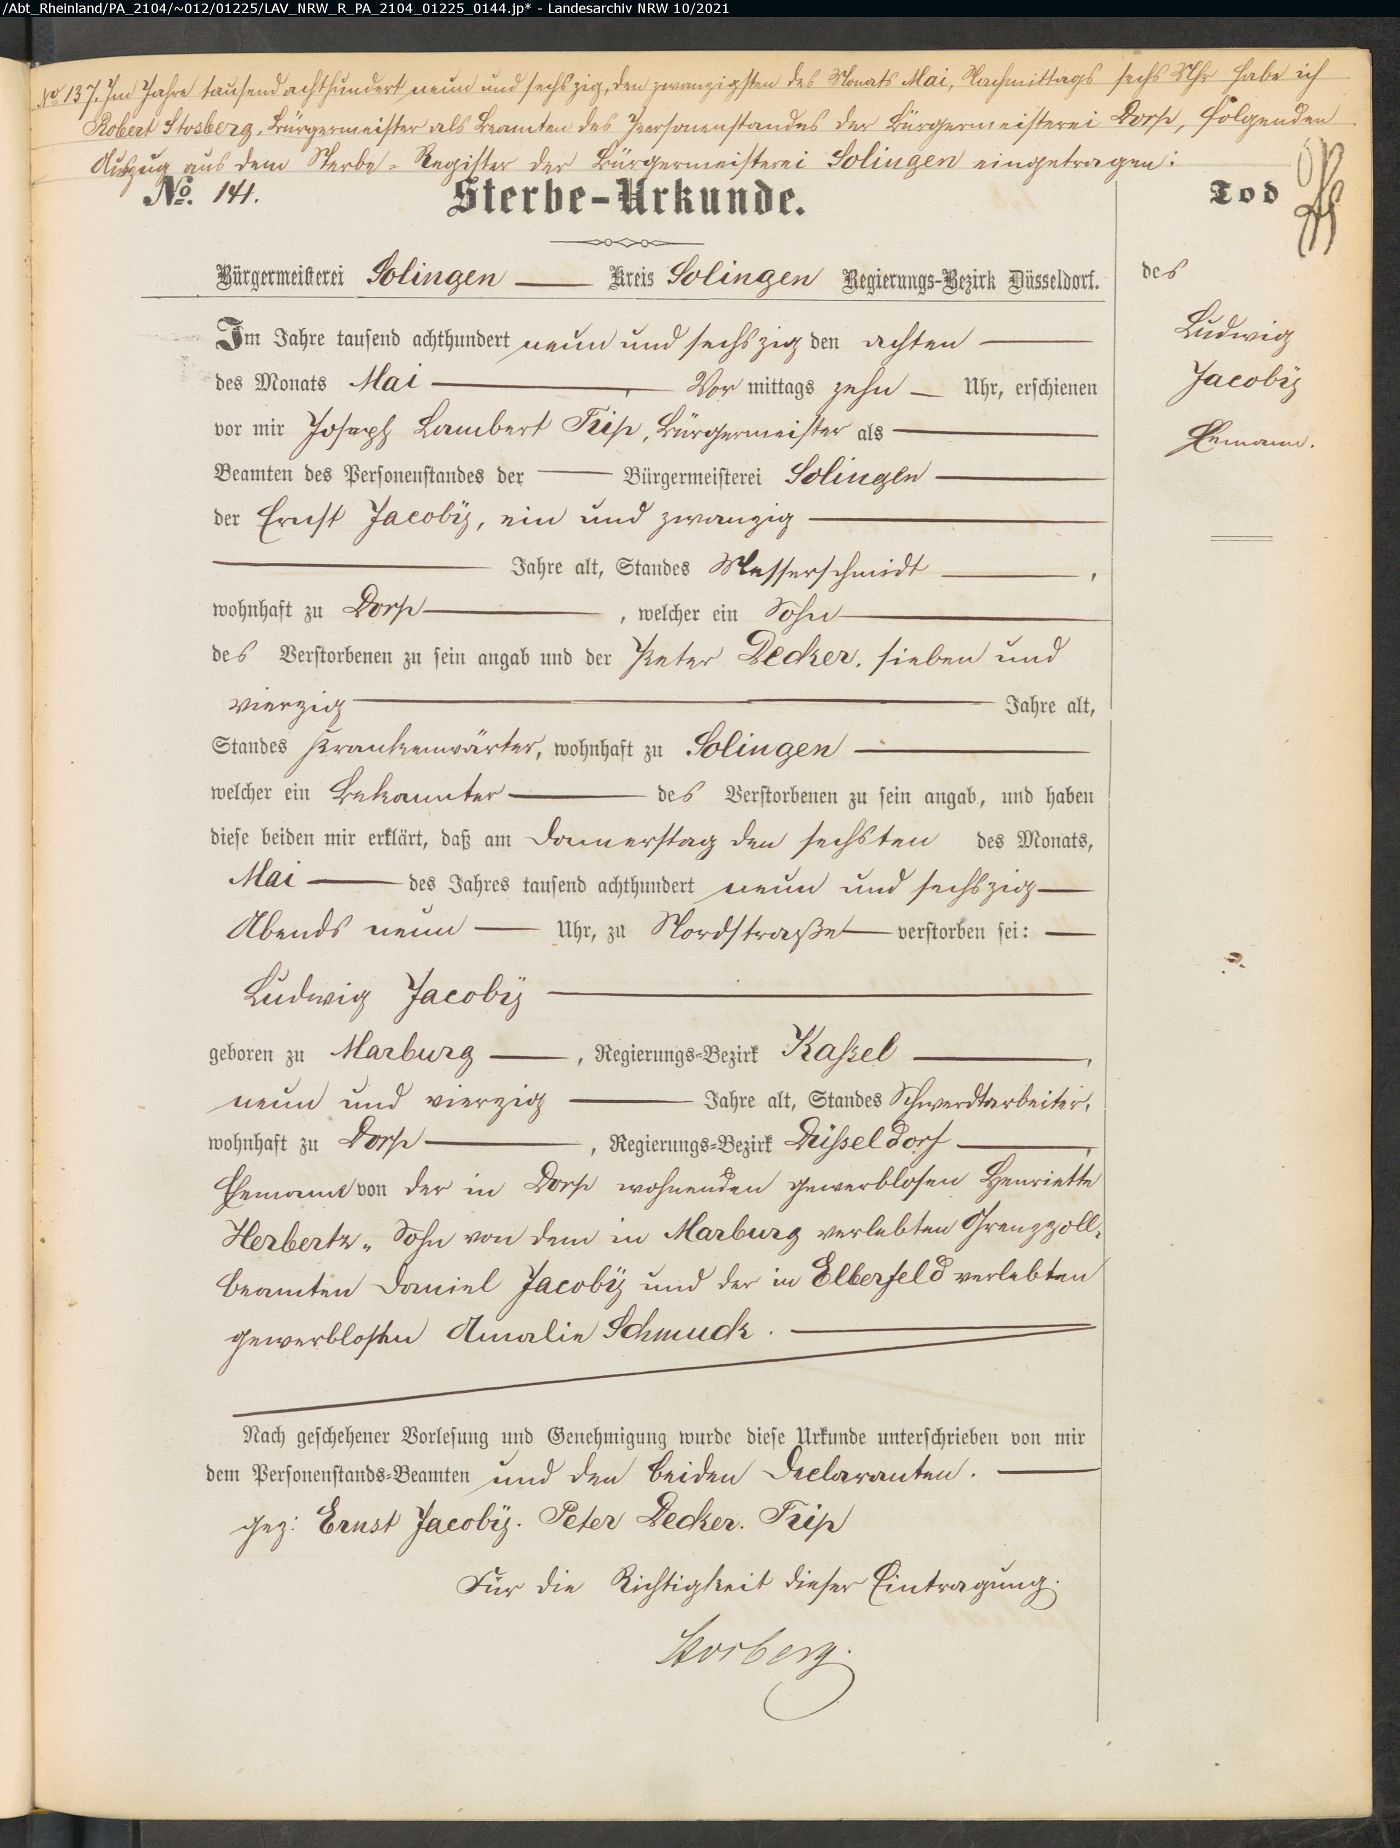 /Abt_Rheinland/PA_2104/~012/01225/LAV_NRW_R_PA_2104_01225_0144.jp* - Landesarchiv NRW 10/2021
No 137. Im Jahre tausend achthundert neun und sechszig, den zwanzigsten des Monats Mai, Nachmittags sechs Uhr habe ich
Robert Stosberg, Bürgermeister als Beamten des Personenstandes der Bürgermeisterei Dorp, folgenden
Auszug aus dem Sterbe-Register der Bürgermeisterei Solingen eingetragen:
No. 141.
Sterbe-Urkunde.
Bürgermeisterei Solingen Kreis Solingen Regierungs-Bezirk Düsseldorf.
Im Jahre tausend achthundert neun und sechszig den achten
des Monats Mai Vor mittags zehn Uhr, erschienen
vor mir Joseph Lambert Trip, Bürgermeister als
Beamten des Personenstandes der Bürgermeisterei Solingen
der Ernst Jacobÿ, ein und zwanzig
Jahre alt, Standes Messerschmidt,
wohnhaft zu Dorp, welcher ein Sohn
des Verstorbenen zu sein angab und der Peter Decker, sieben und
vierzig Jahre alt,
Standes Krankenwärter, wohnhaft zu Solingen
welcher ein Bekannter des Verstorbenen zu sein angab, und haben
diese beiden mir erklärt, daß am Donnerstag den sechsten des Monats,
Mai des Jahres tausend achthundert neun und sechszig
Abends neun Uhr, zu Nordstraße verstorben sei:
Ludwig Jacobÿ
geboren zu Marburg, Regierungs-Bezirk Kaßel,
neun und vierzig Jahre alt, Standes Schwerdtarbeiter,
wohnhaft zu Dorp, Regierungs-Bezirk Düßeldorf,
Ehemann von der in Dorp wohnenden gewerblosen Henriette
Herbertz, Sohn von dem in Marburg verlebten Grenzzoll-
beamten Daniel Jacobÿ und der in Elberfeld verlebten
gewerblosen Amalie Schmuck.
Nach geschehener Vorlesung und Genehmigung wurde diese Urkunde unterschrieben von mir
dem Personenstands-Beamten und den beiden Declaranten.
gez: Ernst Jacobÿ. Peter Decker. Trip
Für die Richtigkeit dieser Eintragung.
Stosberg.
Tod
des
Ludwig
Jacobÿ
Ehemann.